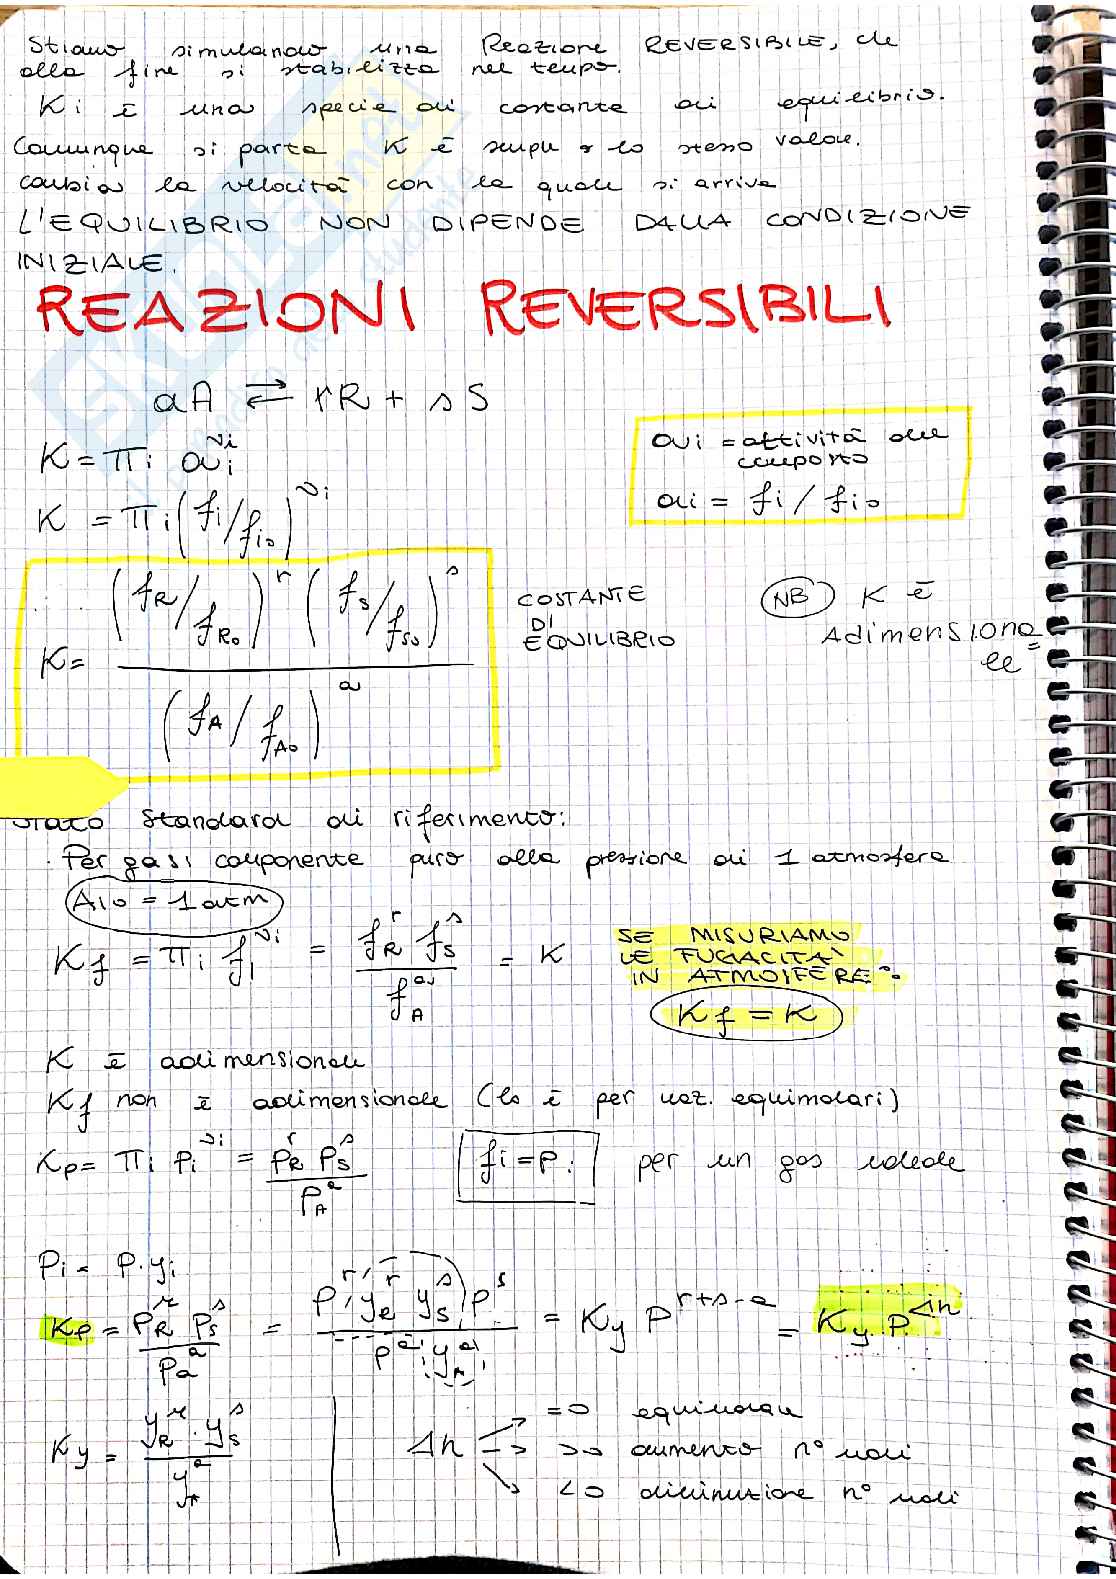 Stiamo simulando una Reazione REVERSIBILE, che
alla fine si stabilizza nel tempo.
Ki è una specie di costante di equilibrio.
Comunque si parta K è sempre lo stesso valore.
cambia la velocità con la quale si arriva
L'EQUILIBRIO NON DIPENDE DALLA CONDIZIONE
INIZIALE.
REAZIONI REVERSIBILI
aA ⇄ rR + sS
K = πi ai^νi
ai = attività del
composto
K = πi (fi/fio)^νi
ai = fi / fio
K = (fR/fRo)^r (fS/fSo)^s / (fA/fAo)^a
COSTANTE
DI
EQUILIBRIO
NB K è
Adimensiona
le
Stato Standard di riferimento:
· Per gas: componente puro alla pressione di 1 atmosfera
Aio = 1 atm
Kf = πi fi^νi = fR^r fS^s / fA^a = K
SE MISURIAMO
LE FUGACITA'
IN ATMOSFERE:
Kf = K
K è adimensionale
Kf non è adimensionale (lo è per reaz. equimolari)
Kp = πi pi^νi = PR^r PS^s / PA^a
fi = Pi
per un gas ideale
Pi = P·yi
Kp = PR^r PS^s / Pa^a = P^r yR^r yS^s P^s / P^a yA^a = Ky P^r+s-a = Ky · P^Δn
Ky = yR^r · yS^s / yA^a
Δn
=0 equimolare
>0 aumento n° moli
<0 diminuzione n° moli
SKUOLA.net